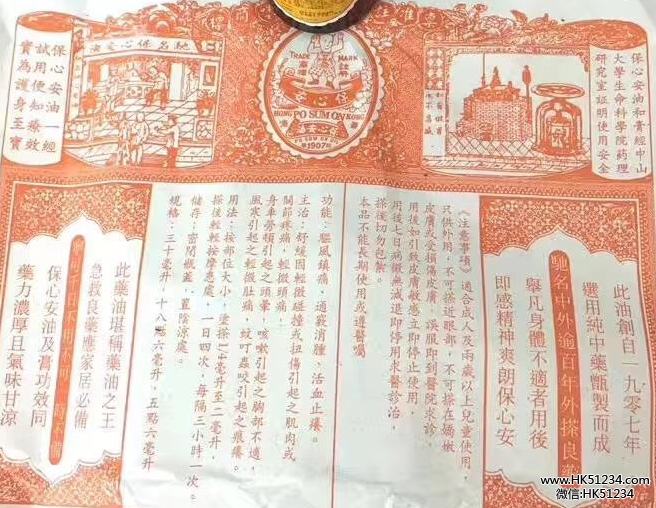 馳名保心安油
保心安油一經
試用便知療效
實為護身至寶
TRADE MARK
註冊
保心安
HONG PO SUM ON KONG
1907
保心安油和黃經中山
大學生命科學院药理
研究室証明使用安全
此油創自一九零七年
選用純中藥甑製而成
馳名中外逾百年外搽良藥
舉凡身體不適者用後
即感精神爽朗保心安
《注意事項》適合成人及兩歲以上兒童使用，
只供外用，不可搽近眼部，不可搽在嬌嫩
皮膚或受損傷皮膚。誤服即到醫院求診，
用後如引致皮膚敏感立即停止使用，
用後七日病徵無減退即停用求醫診治，
搽後切勿包紮。
本品不能長期使用或遵醫囑
功能：驅風鎮痛，通竅消腫，活血止癢。
主治：舒緩因輕微碰撞或扭傷引起之肌肉或
關節疼痛，輕微頭痛：
身車勞頓引起之頭暈，咳嗽引起之胸部不適，
風寒引起之輕微肚痛，蚊叮蟲咬引起之痕癢。
用法：按部位大小，塗搽一毫升至二毫升，
搽後輕輕按摩患處，一日四次，每隔三小時一次。
儲存：密閉瓶蓋，置陰涼處。
規格：三十毫升，十八點六毫升，五點六毫升
此藥油堪稱藥油之王
急救良藥應家居必備
寧可千日不用不可一時不備
保心安油及膏功效同
藥力濃厚且氣味甘涼
www.HK51234.com
微信:HK51234